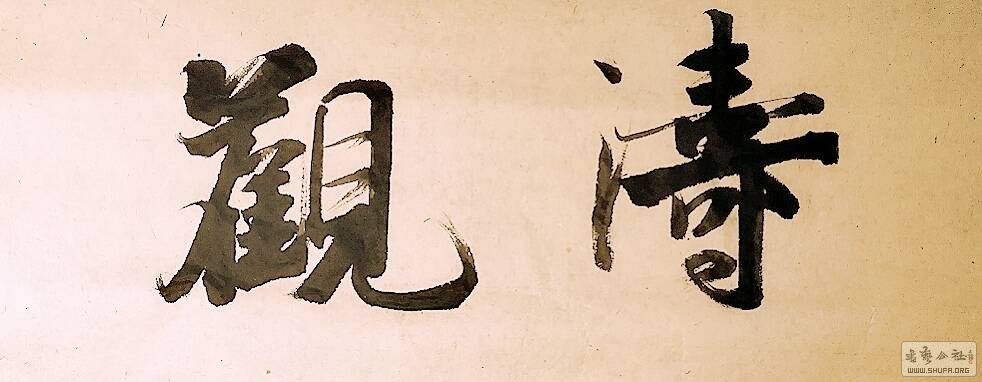 濤觀
书艺公社
WWW.SHUFA.ORG